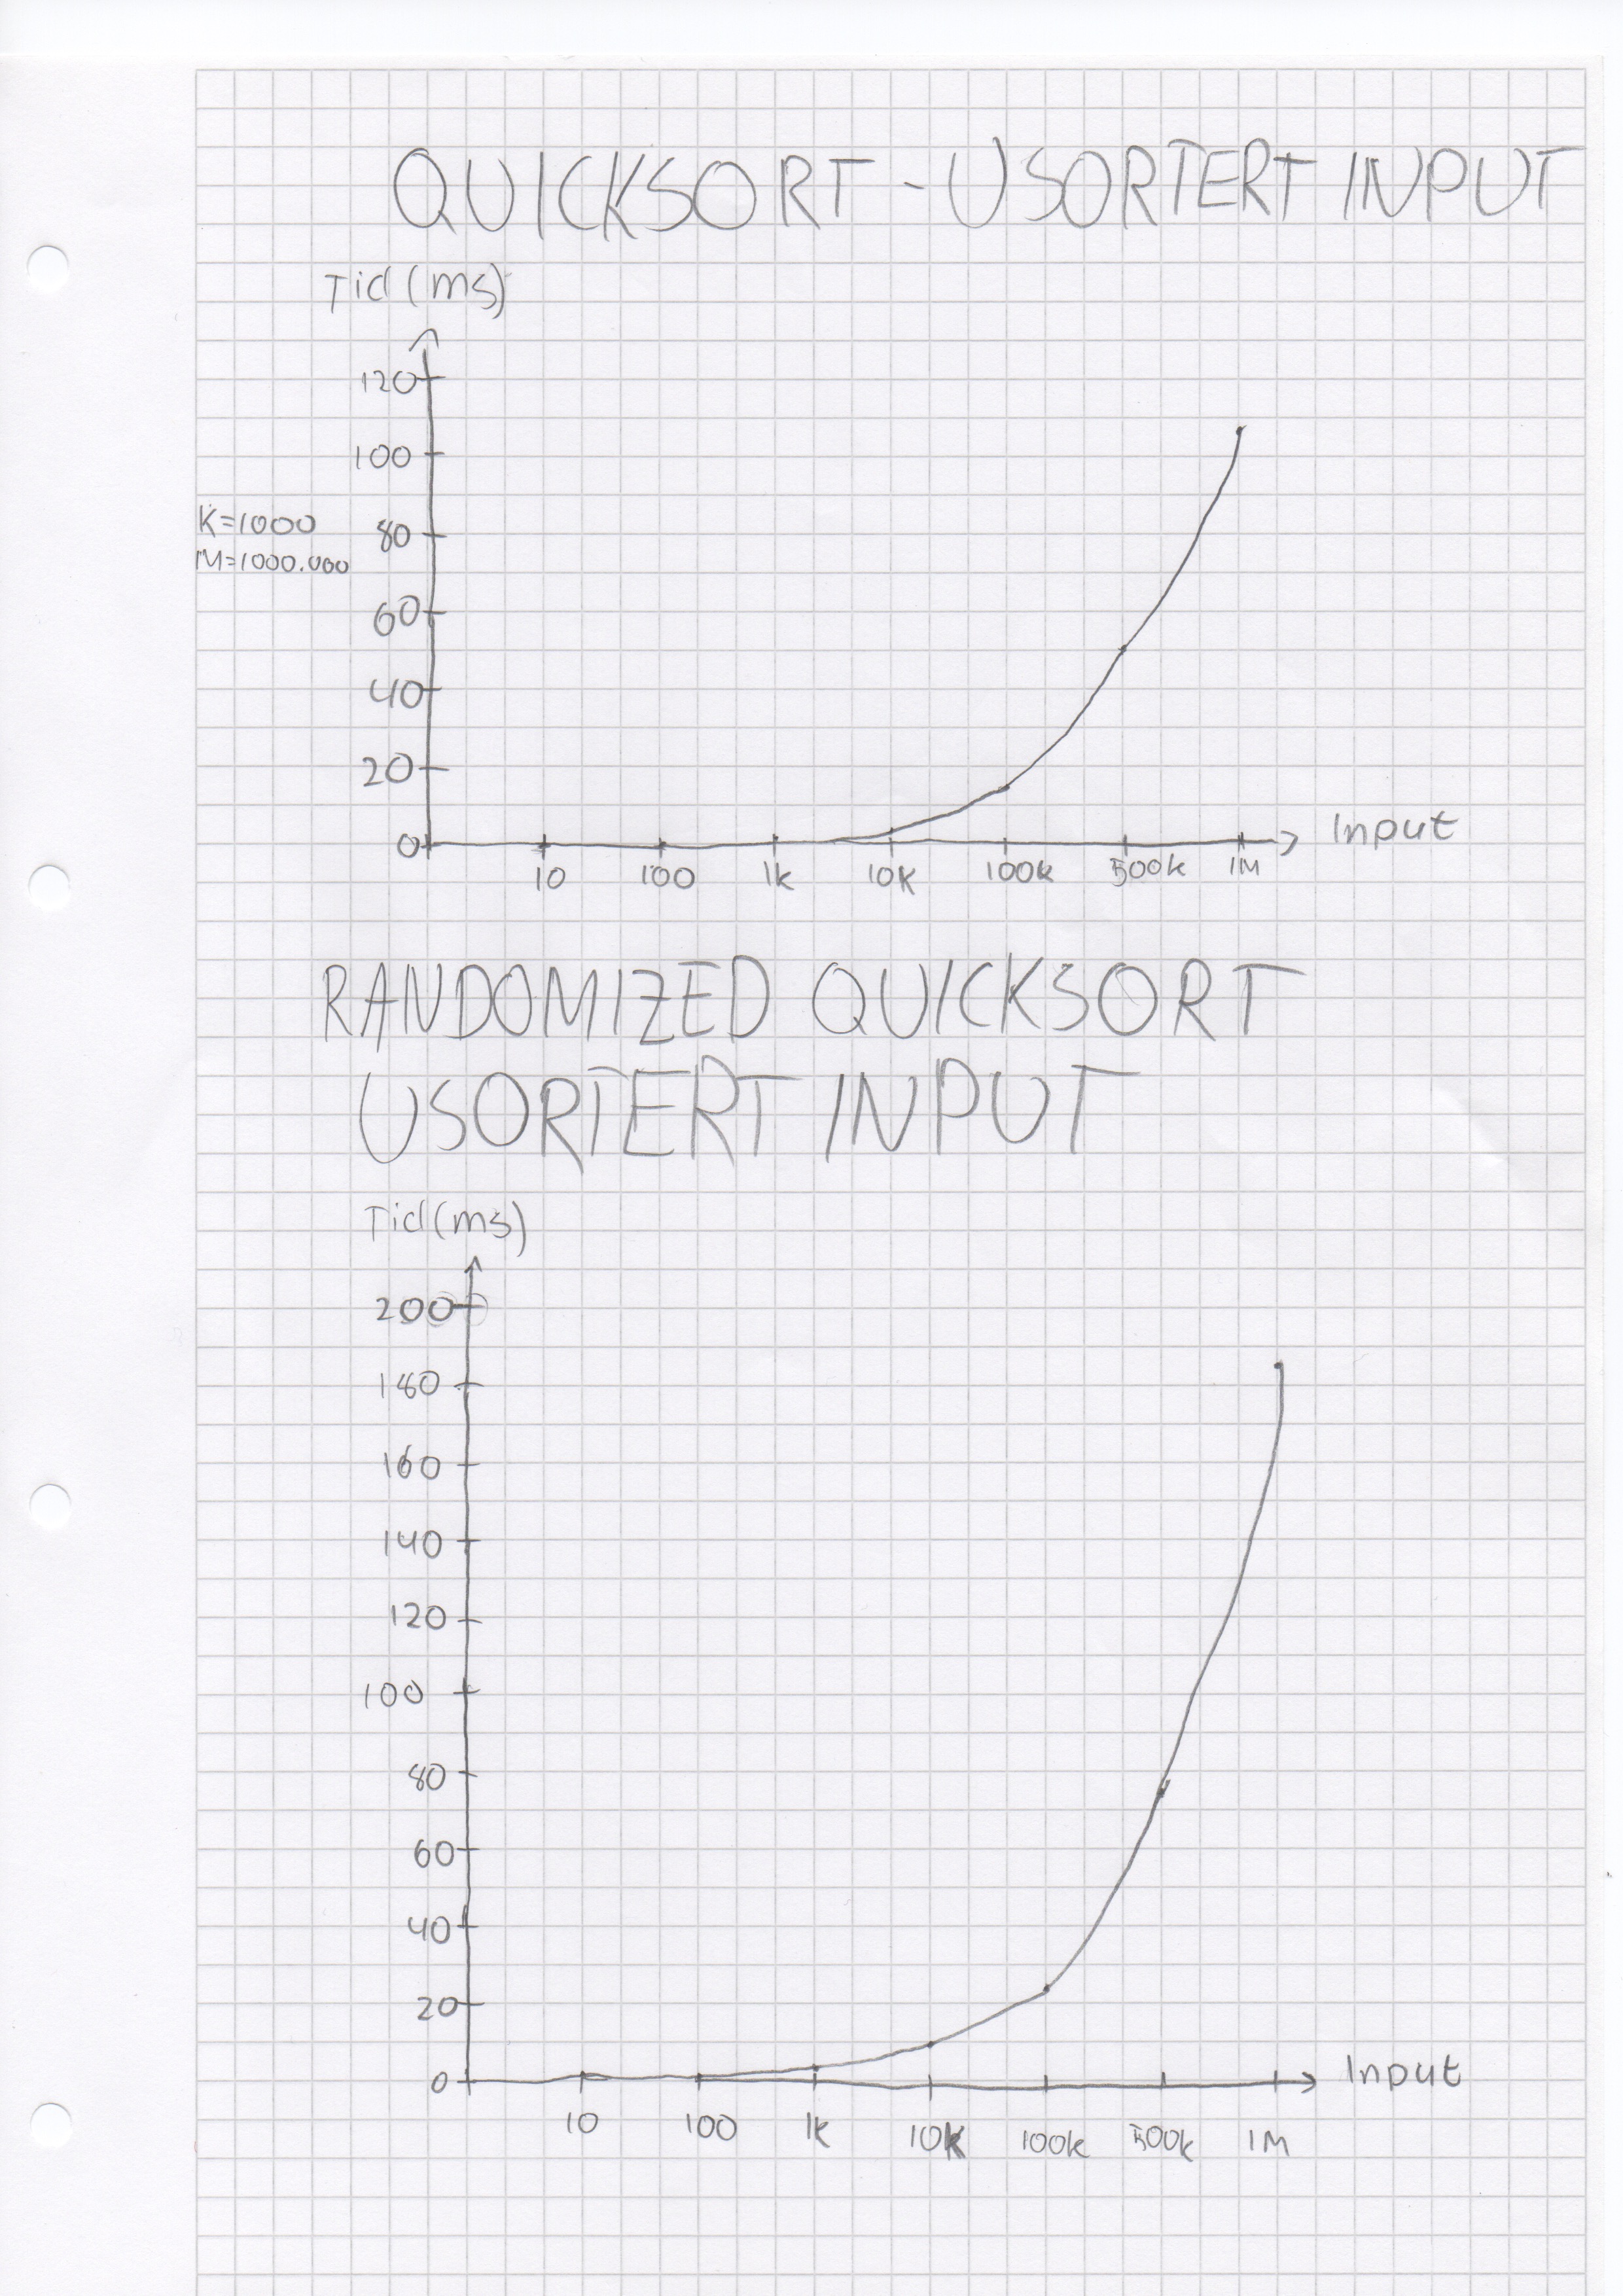 QUICKSORT - USORTERT INPUT
Tid (ms)
120
100
K=1000
M=1000.000
80
60
40
20
0
10 100 1k 10k 100k 500k 1M
Input
RANDOMIZED QUICKSORT
USORTERT INPUT
Tid (ms)
200
180
160
140
120
100
80
60
40
20
0
10 100 1k 10k 100k 500k 1M
Input